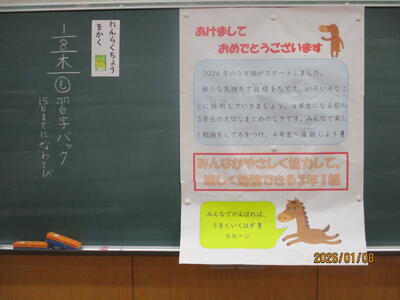 1/8 木
れんらくちょう
をかく
も 習字バック
15日までになわとび
あけまして
おめでとうございます
2026年の3学期がスタートしました。
新たな気持ちで目標をたてて、いろいろなこ
とに挑戦していきましょう。4年生になる前の
3年生の大切なまとめのじきです。みんなで楽し
く勉強をして力をつけ、4年生へ進級しよう!!
みんながやさしく協力して、
楽しく勉強できる3年1組
みんなでがんばれば、
うまくいくはず!!
ヒヒーン
2026/01/08